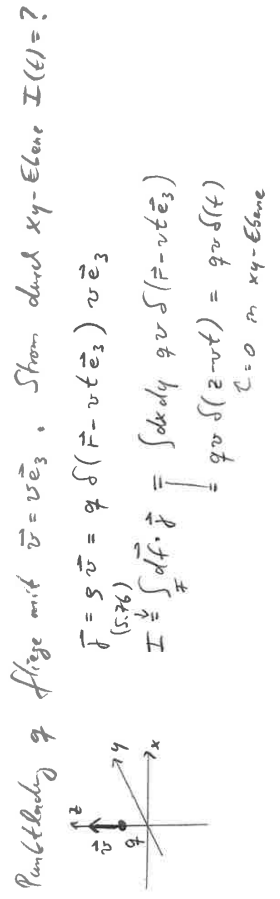 Punktladung q fliege mit v⃗ = v e⃗₃. Strom durch xy-Ebene I(t) = ?
z
v⃗
q
y
x
j⃗ = ρ v⃗ = q δ(r⃗ - v t e⃗₃) v e⃗₃
(5.76)
I = ∫_F df⃗ · j⃗ = ∫ dx dy q v δ(r⃗ - v t e⃗₃)
= q v δ(z - v t) = q v δ(t)
z = 0 in xy-Ebene